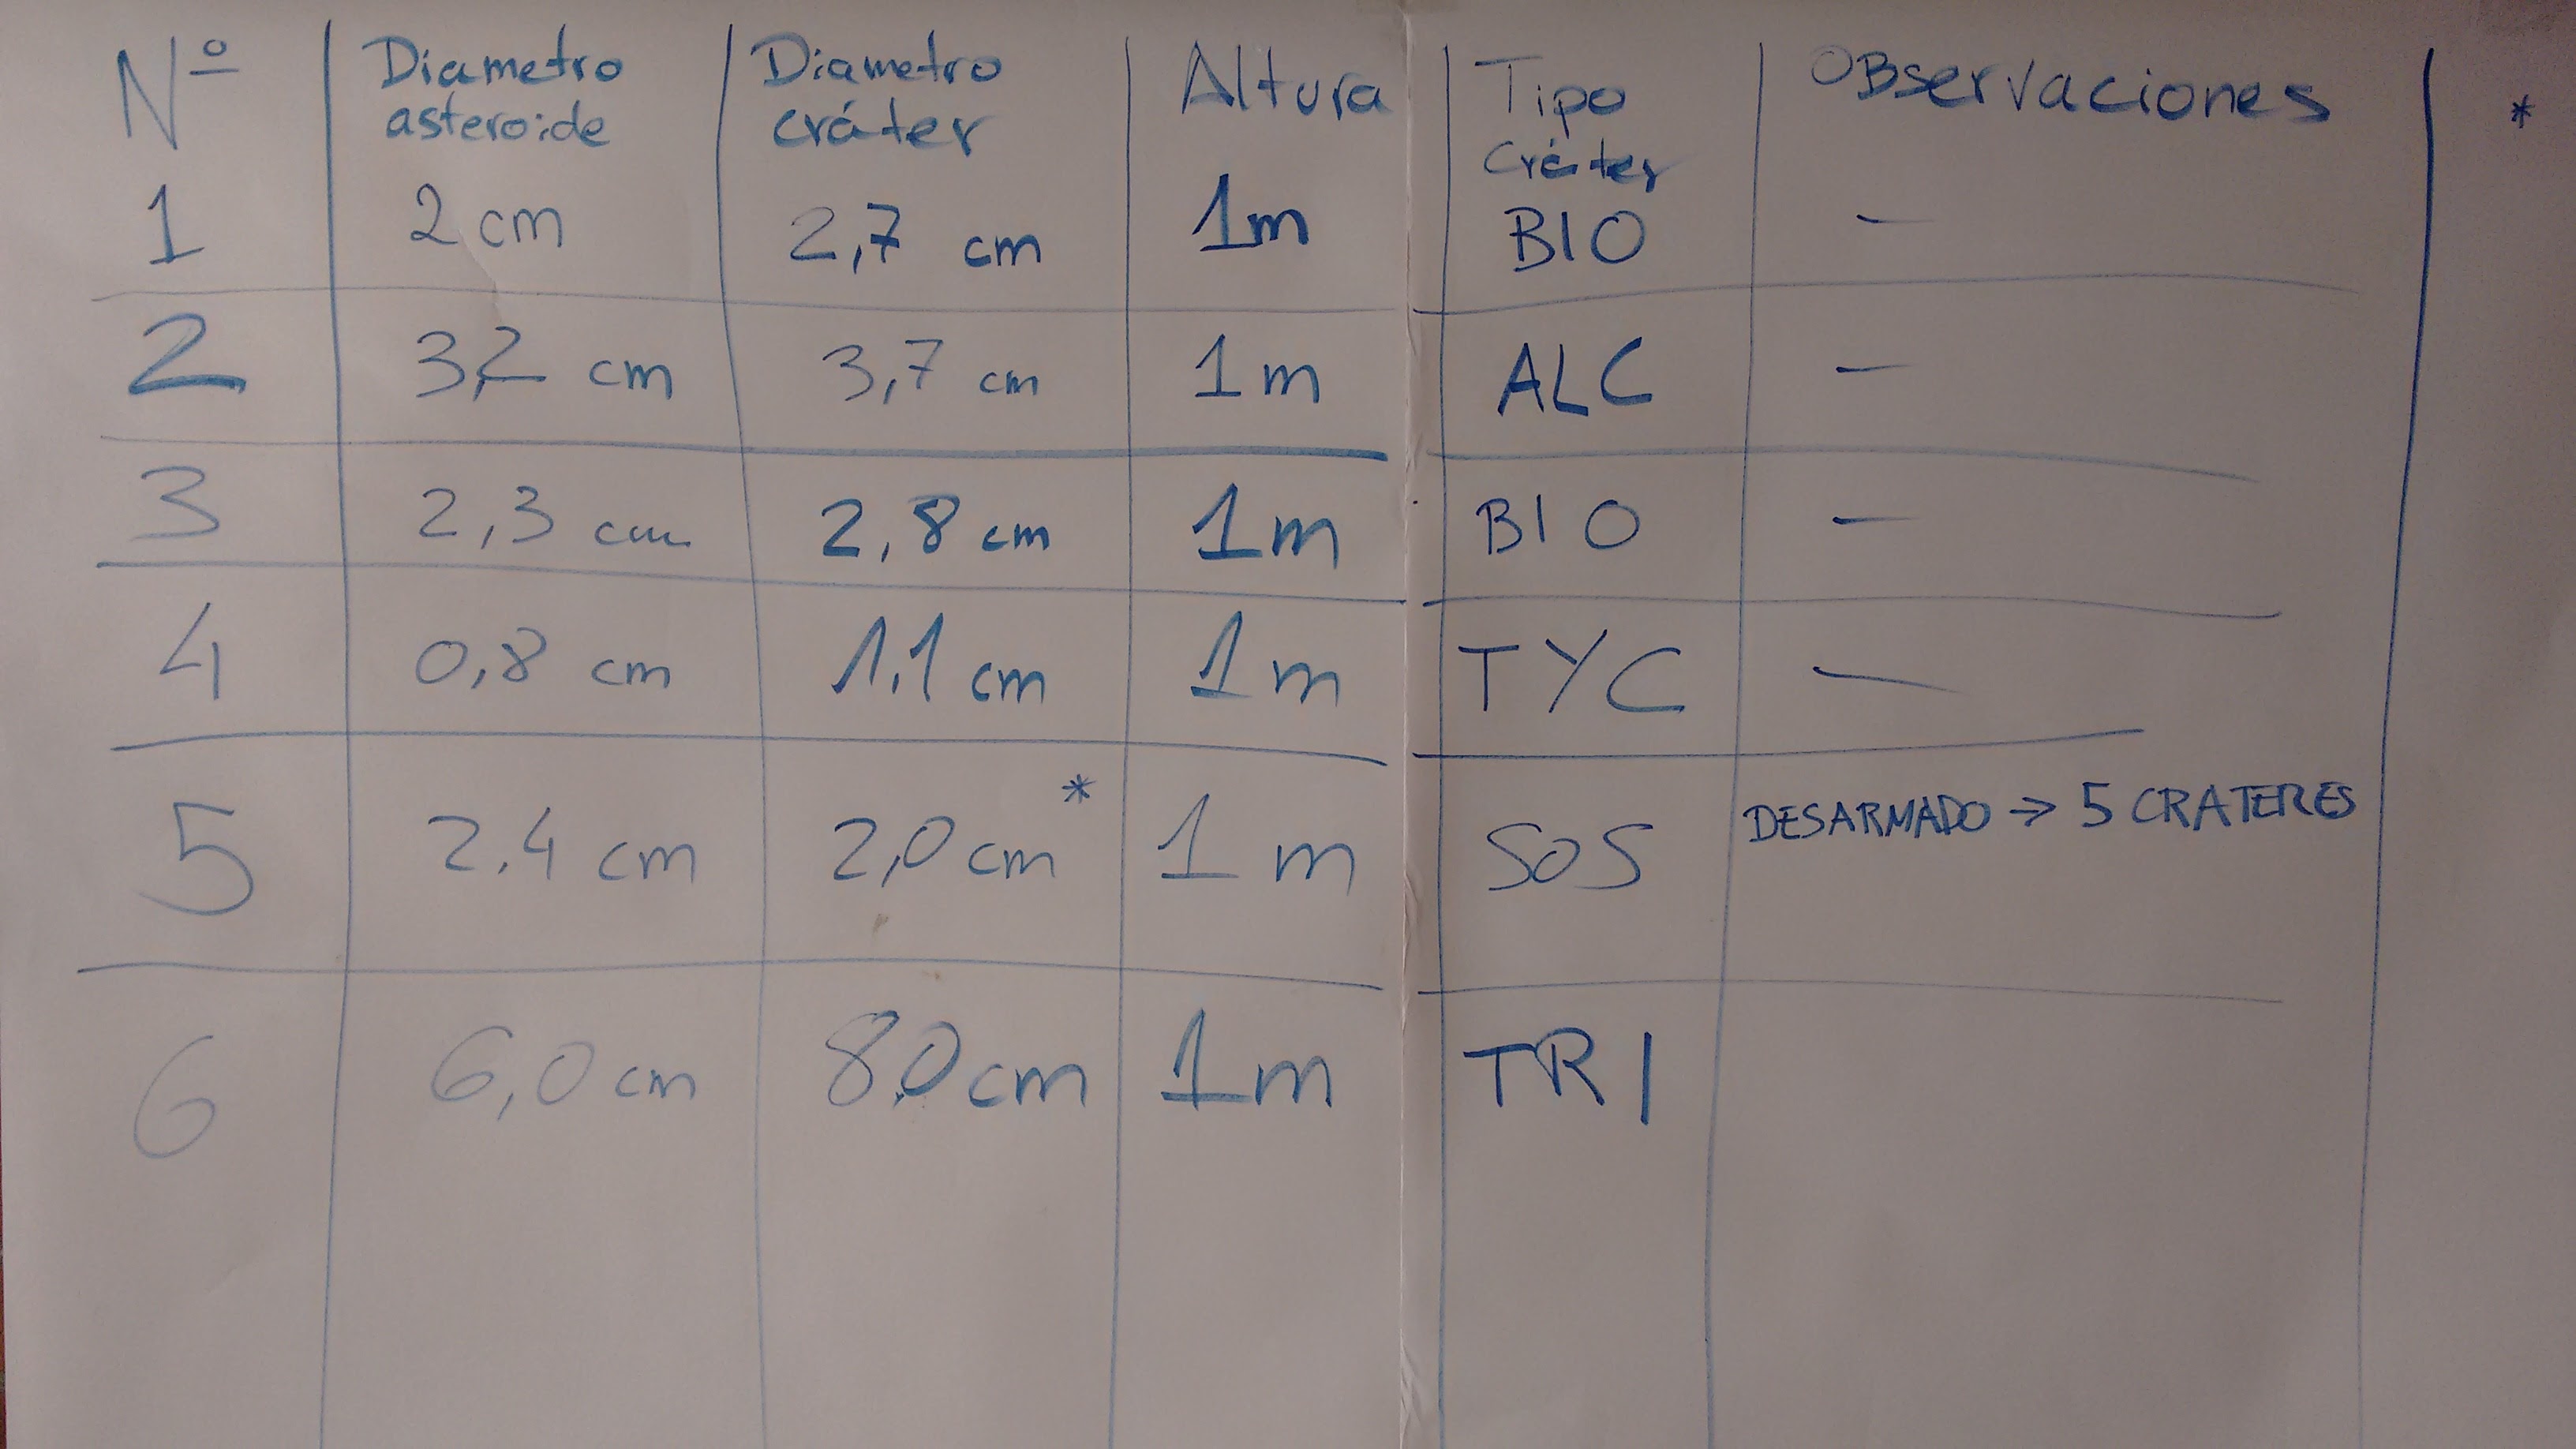 Nº Diametro asteroide Diametro cráter Altura Tipo Cráter Observaciones *
1 2 cm 2,7 cm 1m BIO —
2 3,2 cm 3,7 cm 1m ALC —
3 2,3 cm 2,8 cm 1m BIO —
4 0,8 cm 1,1 cm 1m TYC —
5 2,4 cm 2,0 cm * 1 m SOS DESARMADO → 5 CRATERES
6 6,0 cm 8,0 cm 1m TRI